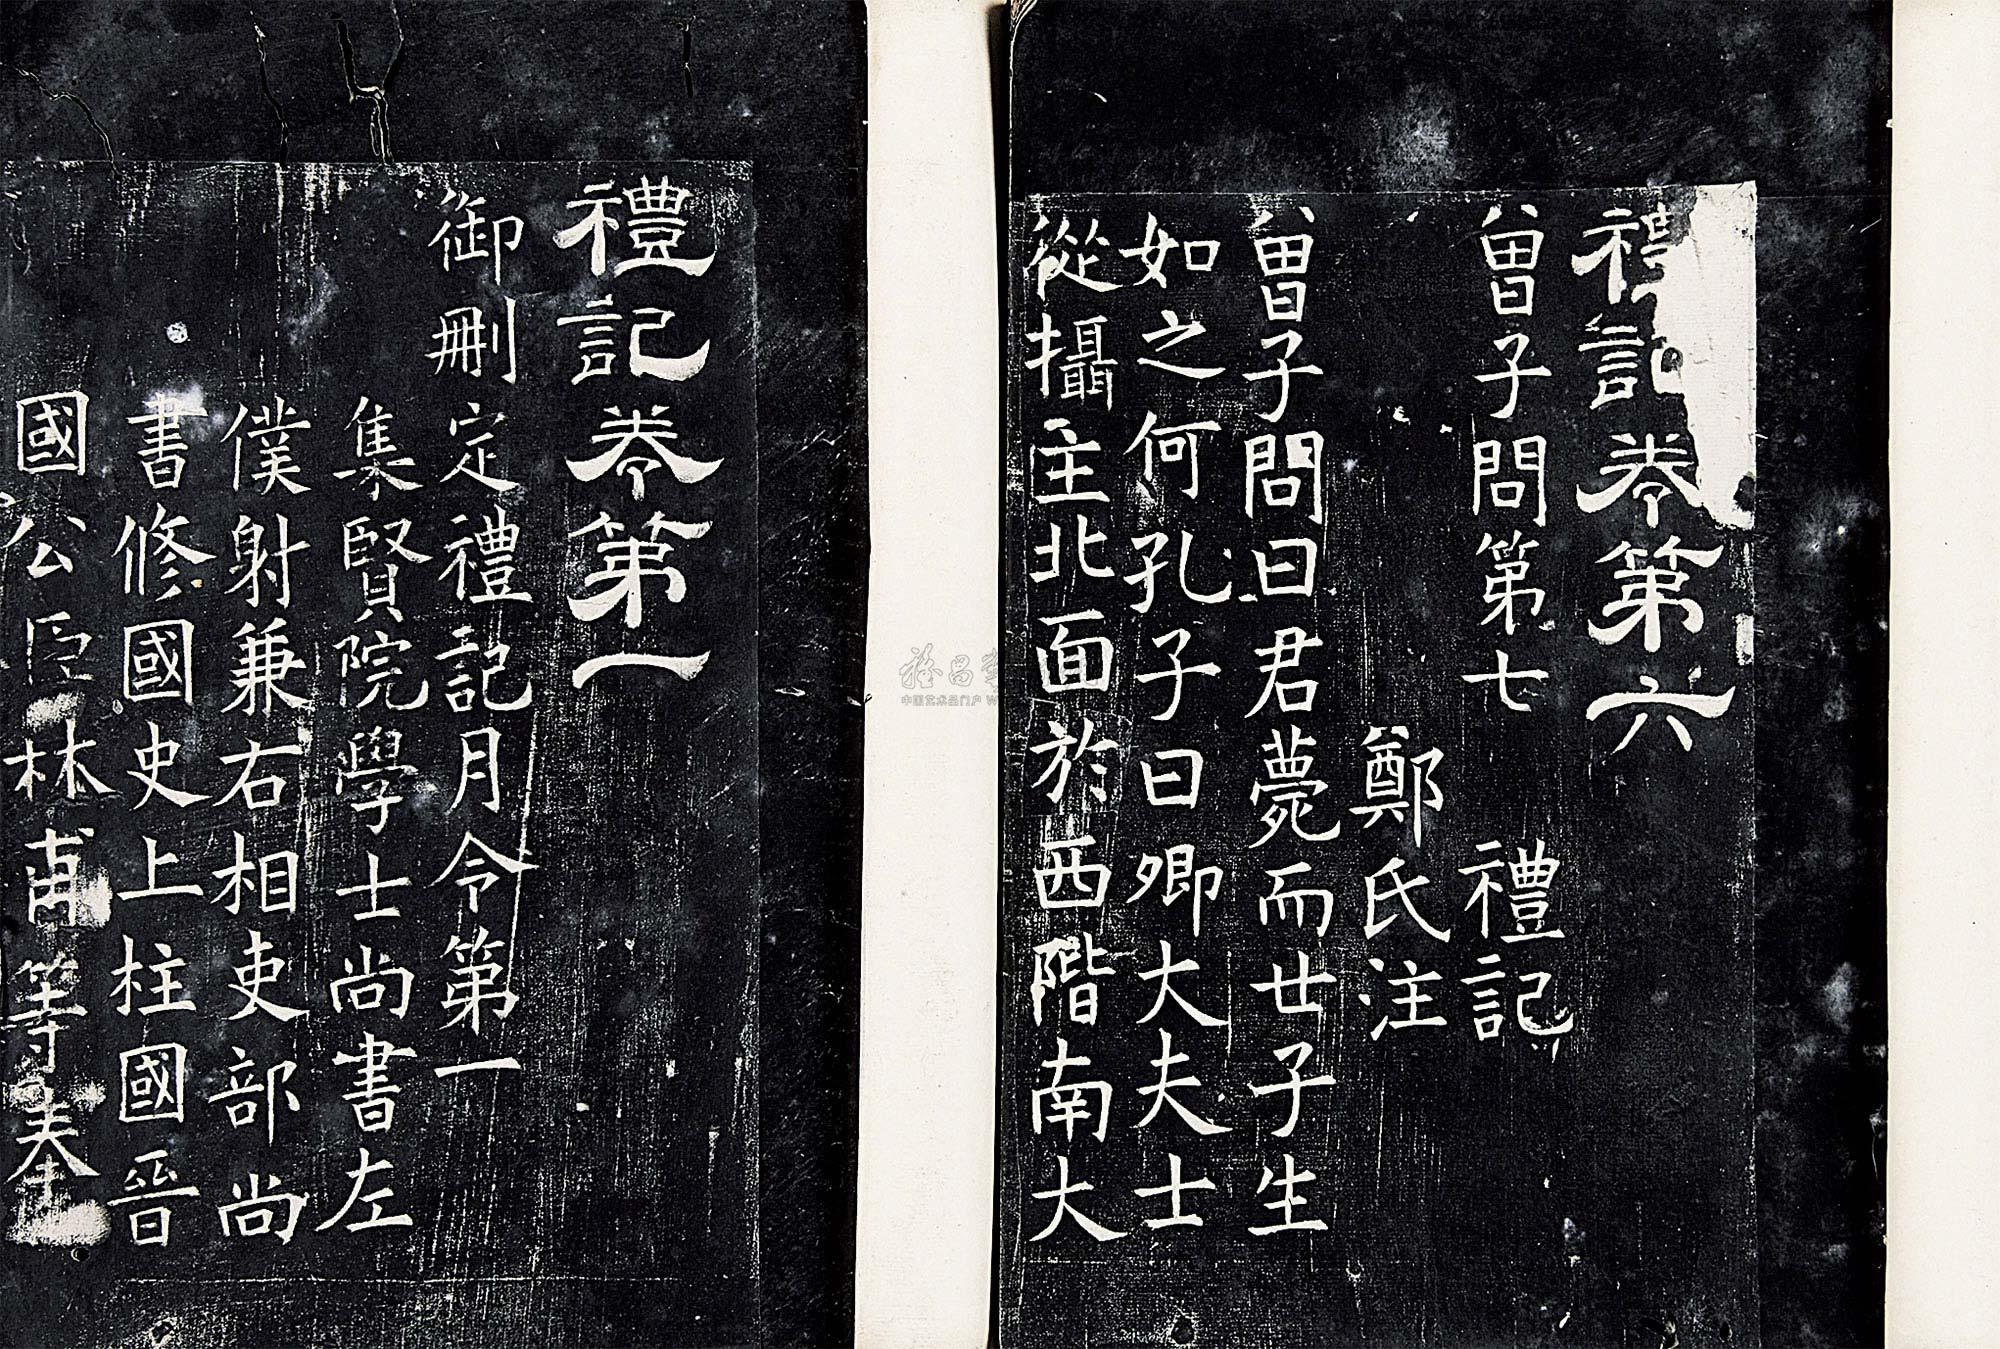 禮記卷第六
曾子問第七 禮記
鄭氏注
曾子問曰君薨而世子生
如之何孔子曰卿大夫士
從攝主北面於西階南大
禮記卷第一
御刪定禮記月令第一
集賢院學士尚書左
僕射兼右相吏部尚
書修國史上柱國晉
國公臣林甫等奉
中国艺术品门户